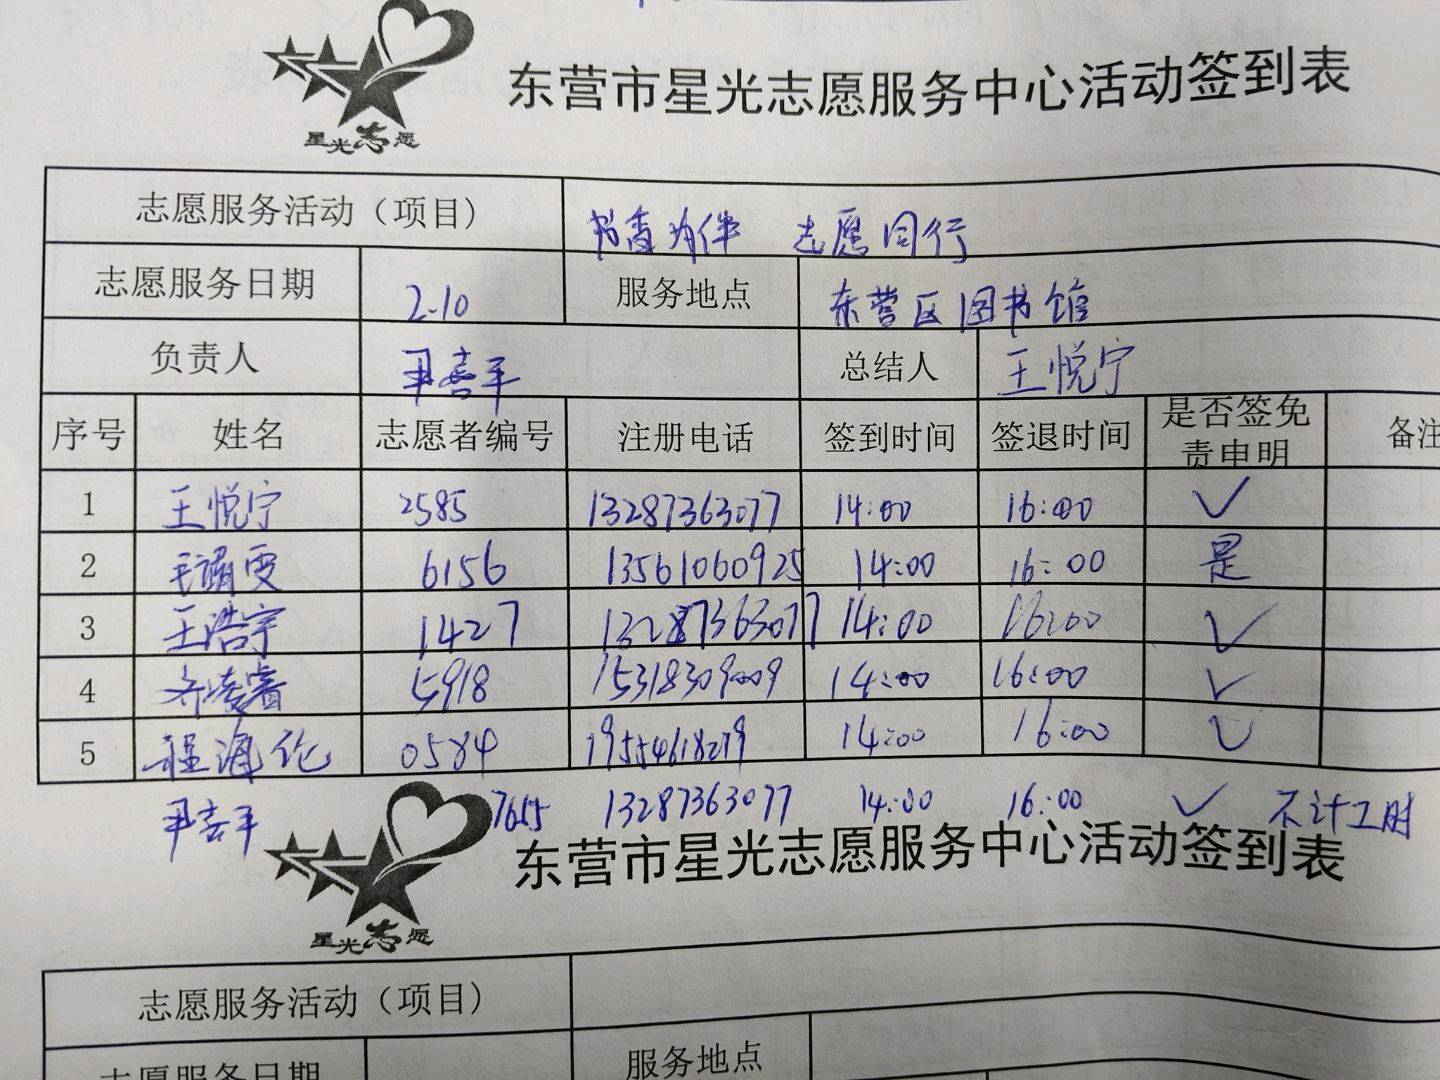 星光志愿
东营市星光志愿服务中心活动签到表
志愿服务活动（项目） 书香为伴 志愿同行
志愿服务日期 2.10 服务地点 东营区图书馆
负责人 尹喜平 总结人 王悦宁
序号 姓名 志愿者编号 注册电话 签到时间 签退时间 是否签免责申明 备注
1 王悦宁 2585 13287363077 14:00 16:00 ✓
2 6156 13561060925 14:00 16:00 是
3 王浩宇 1427 13287363077 14:00 16:00 ✓
4 齐凌睿 5918 15318309009 14:00 16:00 ✓
5 程海伦 0584 19554618279 14:00 16:00 ✓
尹喜平 7655 13287363077 14:00 16:00 ✓ 不计工时
星光志愿
东营市星光志愿服务中心活动签到表
志愿服务活动（项目）
志愿服务日期 服务地点